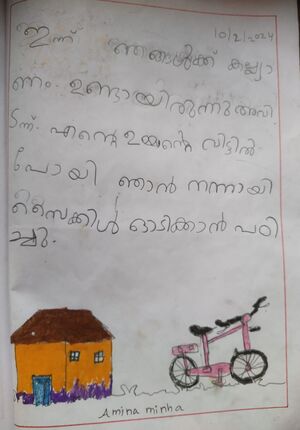 10/2/2024
ഇന്ന് ഞങ്ങൾക്ക് കല്ല്യാ
ണം. ഉണ്ടായിരുന്നു അവി
ടന്ന്. എന്റെ ഉമ്മന്റെ വീട്ടിൽ
പോയി ഞാൻ നന്നായി
സൈക്കിൾ ഓടിക്കാൻ പഠി
ച്ചു.
Amina minha